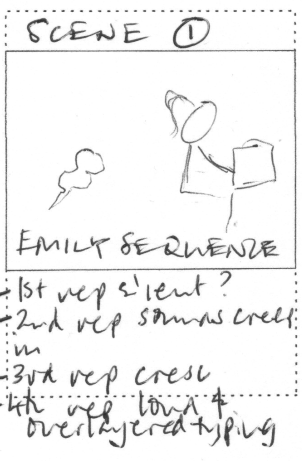 SCENE ①
EMILY SEQUENZE
- 1st rep silent?
- 2nd rep sounds creep
in
- 3rd rep cresc
- 4th rep loud &
overlayered typing